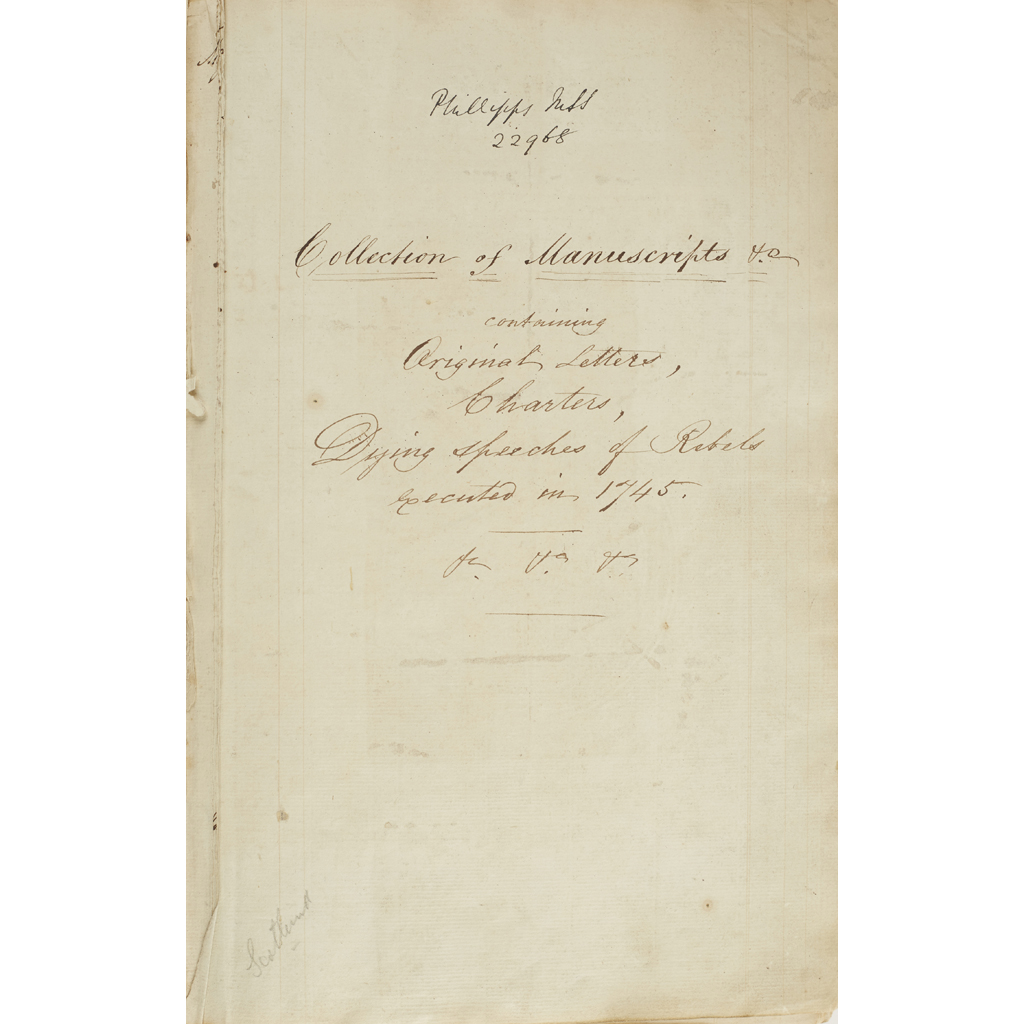 Phillipps MSS
22968
Collection of Manuscripts &c
containing
Original Letters,
Charters,
Dying speeches of Rebels
executed in 1745.
&c. &c. &c.
Scotland